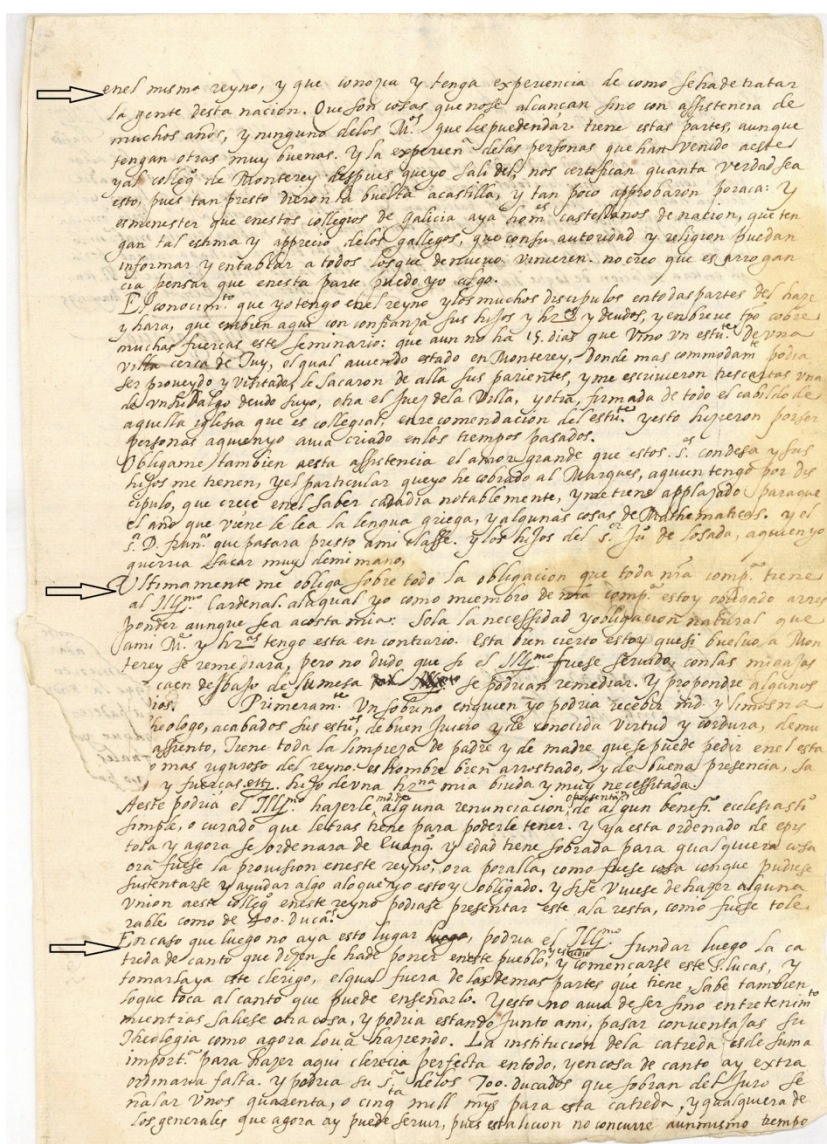 enel mismo reyno, y que conozca y tenga experiencia de como se ha de tratar
la gente desta nacion. Que son cosas que no se alcançan sino con assistencia de
muchos años, y ninguno delos M.os que les pueden dar tiene estas partes, aunque
tengan otras muy buenas. Y la experien.a delas personas que han venido aeste
yal colleg.o de Monterey despues que yo sali del, nos certifican quanta verdad sea
esto, pues tan presto dieron la buelta acastilla, y tan poco approbaron poraca: y
es menester que enestos collegios de galicia aya hom.es castellanos de nacion, que ten
gan tal estima y apprecio delos gallegos, que consu autoridad y religion puedan
informar y entablar a todos losque denuevo vinieren. no creo que es arrogan
cia pensar que enesta parte puedo yo algo.
El conocim.to que yo tengo enel reyno y los muchos discipulos en todas partes del haze
y hara, que embien aqui con confiança sus hijos y hr.os y deudos, y en breve tpo cobre
muchas fuerças este seminario: que aun no ha 15. dias que vino vn estu.te de vna
villa cerca de Tuy, el qual aviendo estado en Monterey, donde mas commodam.te podia
ser proveydo y visitado, le sacaron de alla sus parientes, y me escrivieron tres cartas vna
de vn hidalgo deudo suyo, otra el juez dela Villa, y otra, firmada de todo el cabildo de
aquella iglesia que es collegial, en recomendacion del estu.te y esto hizieron por ser
personas aquien yo avia criado enlos tiempos pasados.
Obligame tambien aesta assistencia el amor grande que estos s.es condesa y sus
hijos me tienen, y el particular que yo he cobrado al Marques, aquien tengo por dis
cipulo, que crece enel saber cadadia notablemente, y me tiene applazado paraque
el año que viene le lea la lengua griega, y algunas cosas de Mathematicas. y el
s.r D. fran.co que pasara presto ami classe. y los hijos del s.or Ju.o de Losada, aquien yo
querria sacar muy demi mano.
Ultimamente me obliga sobre todo la obligacion que toda nra comp.a tiene
al Ill.mo Cardenal. ala qual yo como miembro de nra comp.a estoy obligado arres
ponder aunque sea acosta mia. Sola la necessidad y obligacion natural que
ami M.e y hr.as tengo esta en contrario. Esta bien cierto estoy que si buelvo a Mon
terey se remediara, pero no dudo, que si el Ill.mo fuese servido, con las miajas
caen debajo de su mesa se podrian remediar. Y propondre algunos
ios. Primeram.te Vn sobrino enquien yo podria recebir md. y limosna
heologo, acabados sus estu.s, de buen juicio y de conocida virtud y cordura, de mu
assiento, tiene toda la limpieza de padre y de madre que se puede pedir enel esta
o mas riguroso del reyno. es hombre bien arrostrado, y de buena presencia, sa
y fuerças ett.a hijo de vna hr.na mia biuda y muy necessitada.
Aeste podria el Ill.mo hazerle md. de alguna renunciacion, o presentaçion de algun benefi.o ecclesiasti
simple, o curado que letras tiene para poderle tener. y ya esta ordenado de epis
tola y agora se ordenara de Euang.o y edad tiene sobrada para qual quiera cosa
ora fuese la provision eneste reyno, ora poralla, como fuese cosa conque pudiese
sustentarse y ayudar algo aloque yo estoy obligado. y si se Vuiese de hazer alguna
Vnion aeste colleg.o eneste reyno podriase presentar este ala resta, como fuese tole
rable como de 400. Duca.s
En caso que luego no aya esto lugar, podria el Ill.mo fundar luego la ca
treda de canto que dizen se hade poner eneste pueblo, y començarse este S. Lucas, y
tomarlaya este clerigo, el qual fuera de las demas partes que tiene, sabe tambien
loque toca al canto que puede enseñarlo. Y esto no avia de ser sino entretenim.to
mientras saliese otra cosa, y podria estando junto ami, pasar con ventajas su
Theologia como agora lo va haziendo. La institucion dela catreda es de suma
import.a para hazer aqui clerecia perfecta en todo, y en cosa de canto ay extra
ordinaria falta. y podria su s.ria delos 700. ducados que sobran del juro se
ñalar Vnos quarenta, o cinq.ta mill mrs para esta catreda, y qualquiera de
los generales que agora ay puede servir, pues esta licion no concurre aunmismo tiempo